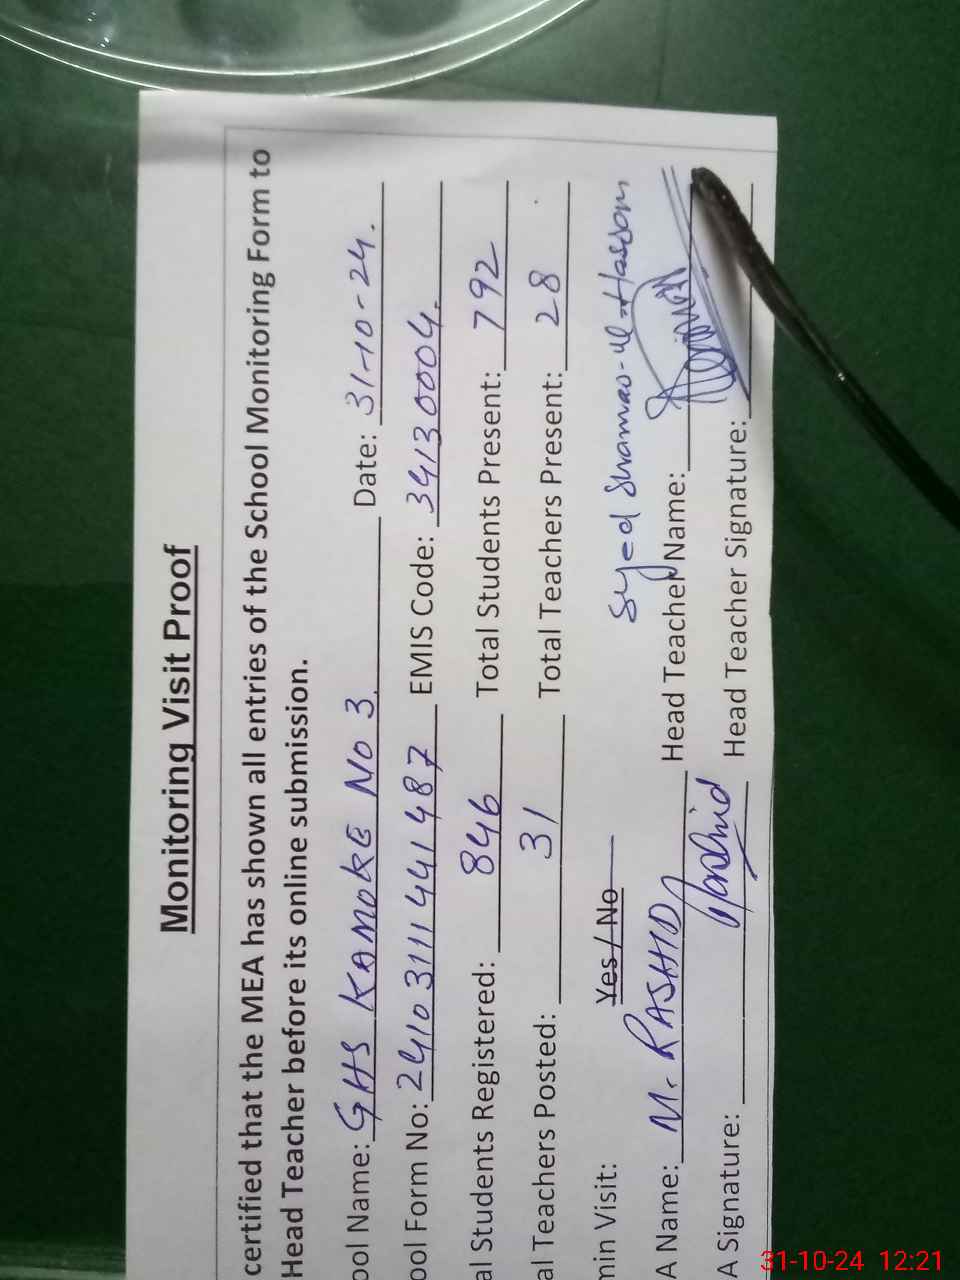 Monitoring Visit Proof
certified that the MEA has shown all entries of the School Monitoring Form to
Head Teacher before its online submission.
ool Name: GHS KAMOKE No 3 Date: 31-10-24.
ool Form No: 24103111441487 EMIS Code: 34130004.
al Students Registered: 846 Total Students Present: 792
al Teachers Posted: 31 Total Teachers Present: 28
min Visit: Yes / No
Syed -ul-Hassan
A Name: M. RASHID Head Teacher Name:
A Signature: Rashid Head Teacher Signature:
31-10-24 12:21